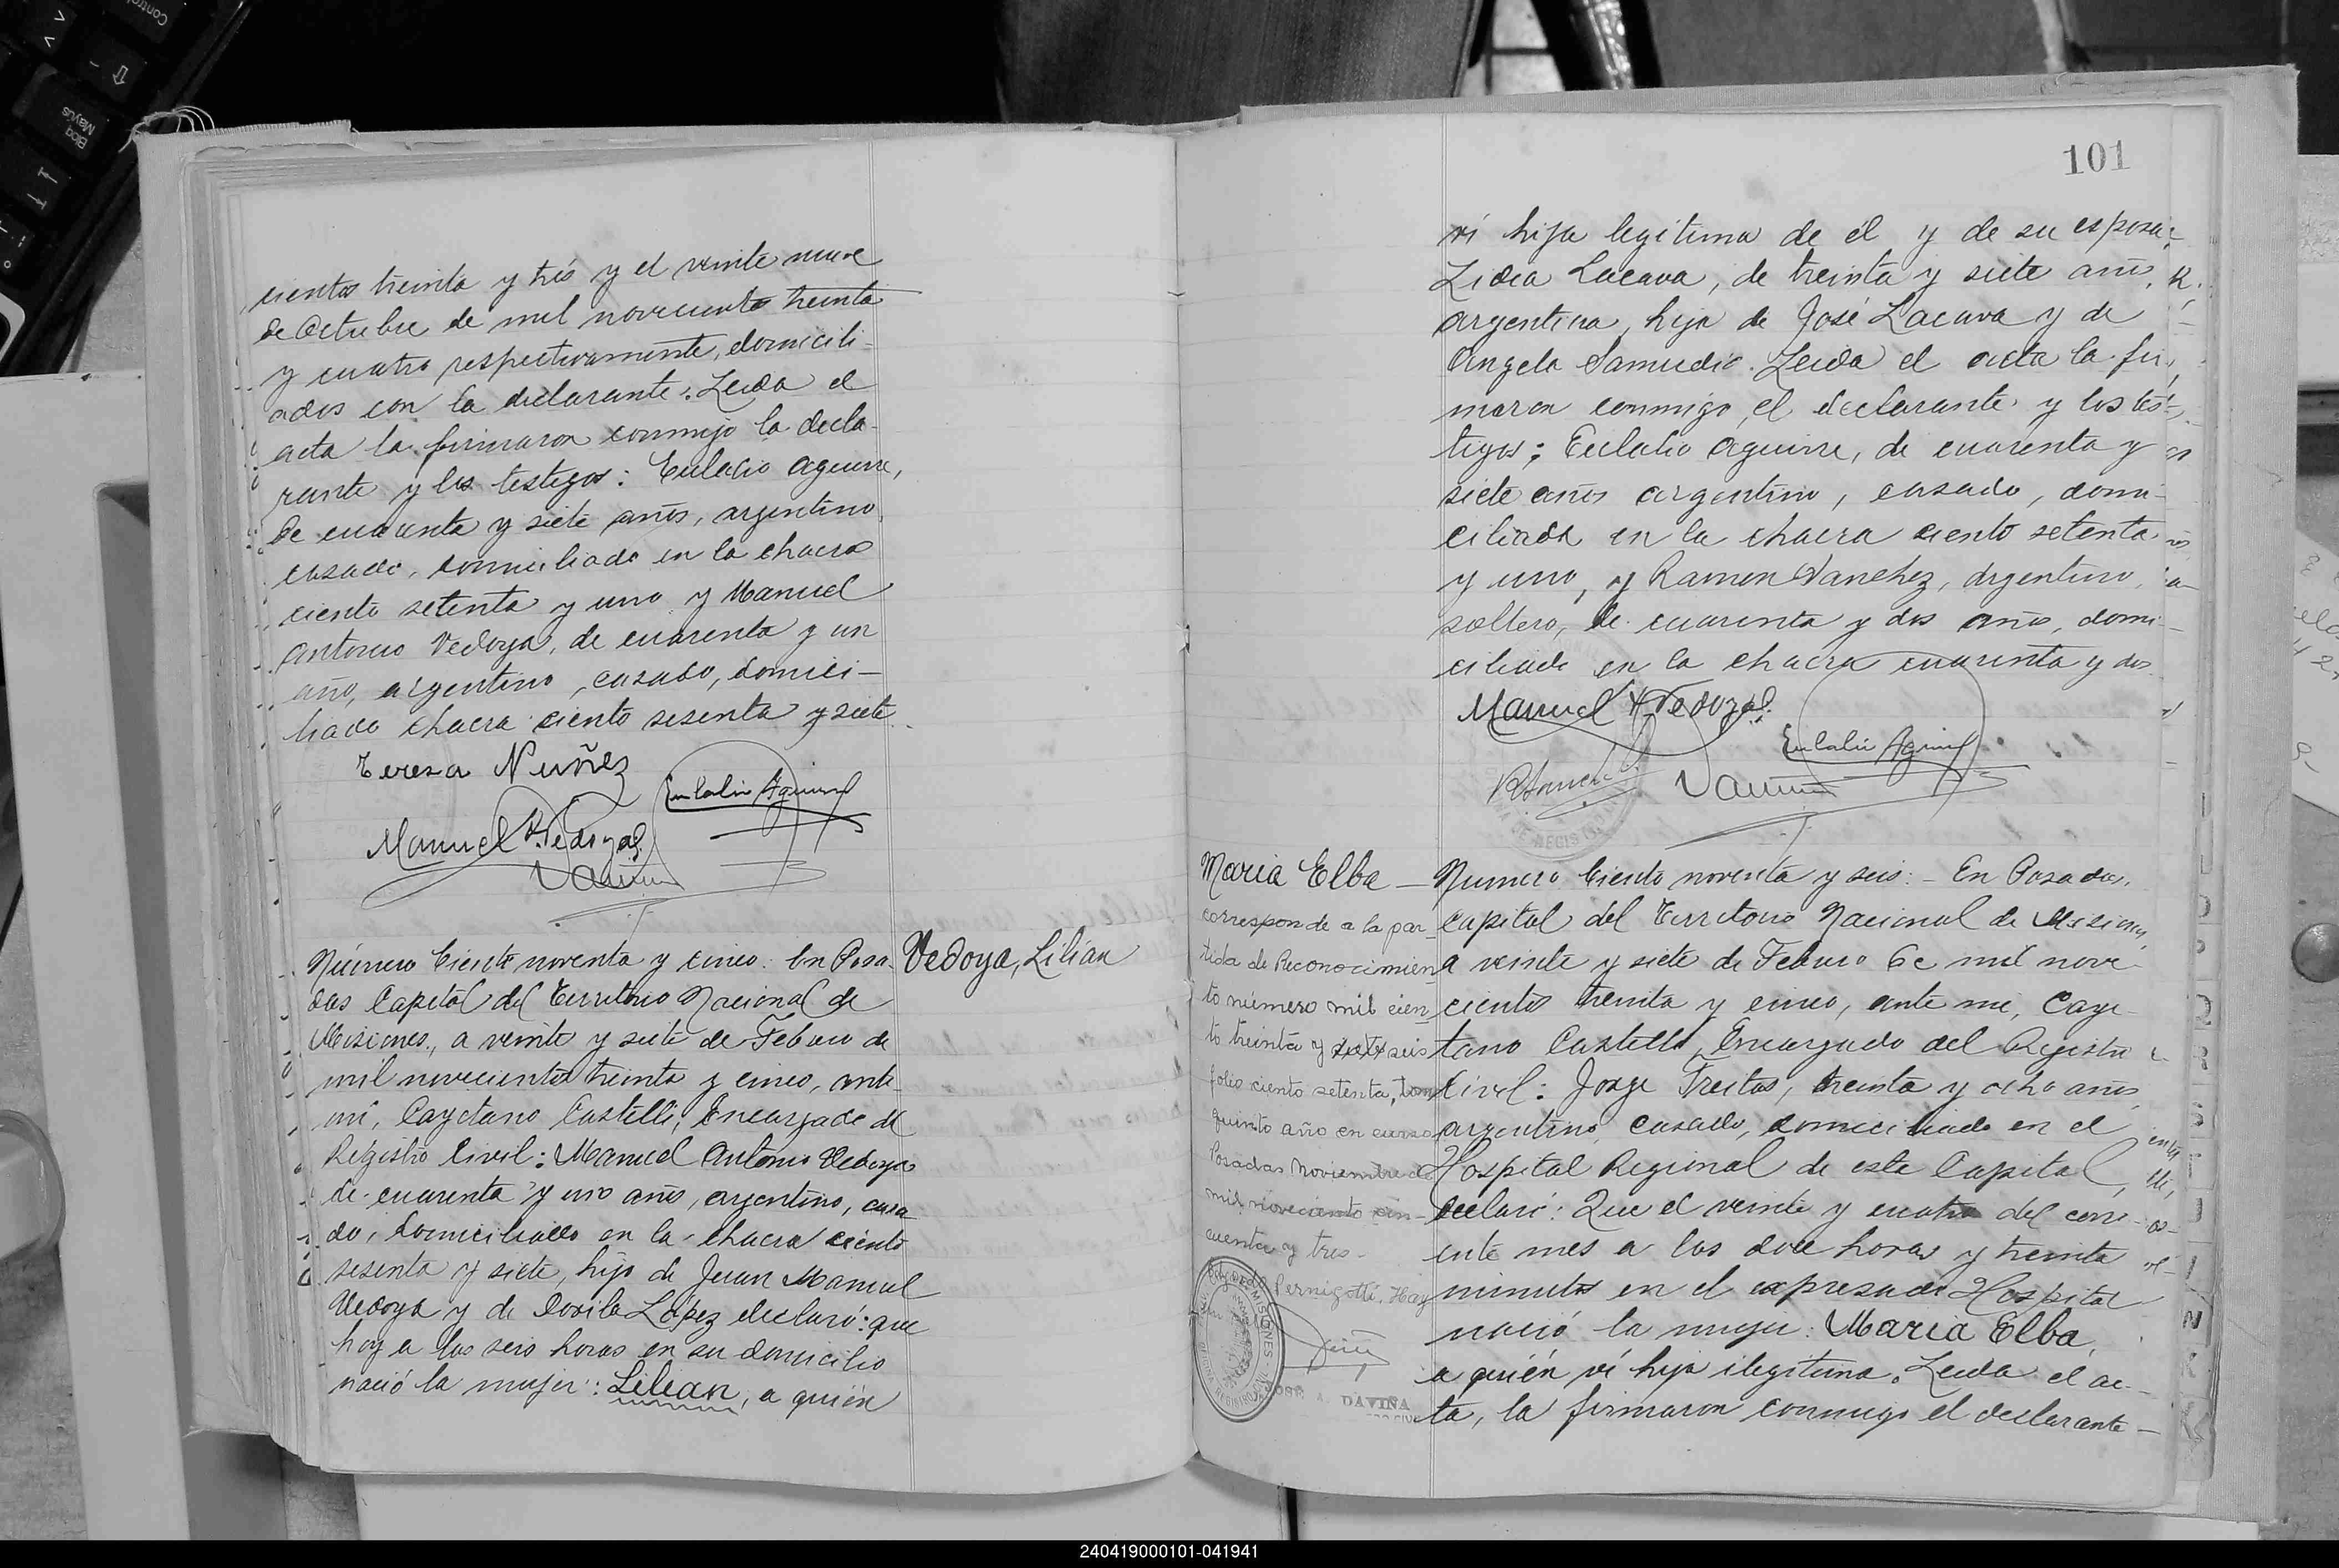 cientos treinta y trés y el veinte nueve
de Octubre de mil novecientos treinta
y cuatro respectivamente, domicili-
ados con la declarante. Leida el
acta la firmaron conmigo la decla-
rante y los testigos: Eulalio Aguirre,
de cuarenta y siete años, argentino,
casado, domiciliado en la chacra
ciento setenta y uno y Manuel
Antonio Vedoya, de cuarenta y un
año, argentino, casado, domici-
liado chacra ciento sesenta y siete.
Teresa Nuñez
Eulalio Aguirre
Manuel A. Vedoya
Número Ciento noventa y cinco. En Posa-
das Capital del Territorio Nacional de
Misiones, a veinte y siete de Febrero de
mil novecientos treinta y cinco, ante
mi, Cayetano Castelli, Encargado del
Registro Civil: Manuel Antonio Vedoya
de cuarenta y uno años, argentino, casa-
do, domiciliado en la chacra ciento
sesenta y siete, hijo de Juan Manuel
Vedoya y de López declaró: que
hoy a las seis horas en su domicilio
nació la mujer: Lilian, a quién
Vedoya, Lilian
101
ví hija legítima de él y de su esposa:
Lidia Lacava, de treinta y siete años,
argentina, hija de José Lacava y de
Angela Samudio. Leida el acta la fir-
maron conmigo, el declarante y los tes-
tigos; Eulalio Aguirre, de cuarenta y
siete años argentino, casado, domi-
ciliado en la chacra ciento setenta
y uno, y Ramon Sanchez, argentino,
soltero, de cuarenta y dos años, domi-
ciliado en la chacra cuarenta y dos
Manuel A. Vedoya
Eulalio Aguirre
Maria Elba
corresponde a la par-
tida de Reconocimien-
to número mil cien-
to treinta y siete seis
folio ciento setenta, tomo
quinto año en curso
Posadas Noviembre de
mil novecientos cin-
cuenta y tres -
Pernigotti. Hay
MISIONES
DAVIÑA
Numero Ciento noventa y seis: - En Posadas,
Capital del Territorio Nacional de Misiones,
a veinte y siete de Febrero de mil nove-
cientos treinta y cinco, ante me, Caye-
tano Castelli, Encargado del Registro
Civil: Jorge Freitas, treinta y ocho años,
argentino, casado, domiciliado en el
Hospital Regional de esta Capital,
declaró: Que el veinte y cuatro del corri-
ente mes a las doce horas y treinta
minutos en el expresado Hospital
nació la mujer: Maria Elba,
a quién ví hija ilegitima. Leida el ac-
ta, la firmaron conmigo el declarante -
240419000101-041941